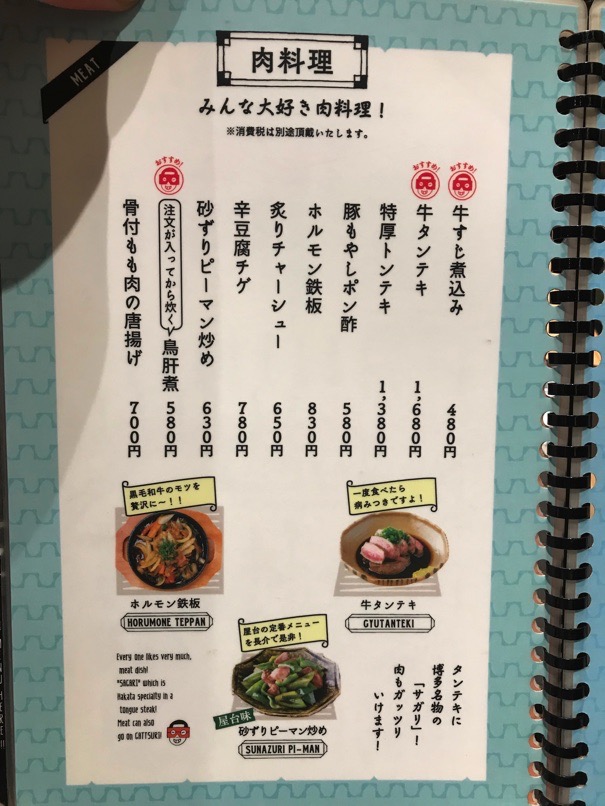 MEAT
肉料理
みんな大好き肉料理!
※消費税は別途頂戴いたします。
おすすめ!
牛すじ煮込み 480円
おすすめ!
牛タンテキ 1,680円
特厚トンテキ 1,380円
豚もやしポン酢 580円
ホルモン鉄板 830円
炙りチャーシュー 650円
辛豆腐チゲ 780円
砂ずりピーマン炒め 630円
おすすめ!
注文が入ってから炊く 鳥肝煮 580円
骨付もも肉の唐揚げ 700円
黒毛和牛のモツを
贅沢に〜!!
ホルモン鉄板
HORUMONE TEPPAN
一度食べたら
病みつきですよ!
牛タンテキ
GYUTANTEKI
屋台の定番メニュー
を長介で是非!
屋台味
砂ずりピーマン炒め
SUNAZURI PI-MAN
タンテキに
博多名物の
「サガリ」!
肉もガッツリ
いけます!
Every one likes very much,
meat dish!
"SAGARI" which is
Hakata specialty in a
tongue steak!
Meat can also
go on GATTSURI!